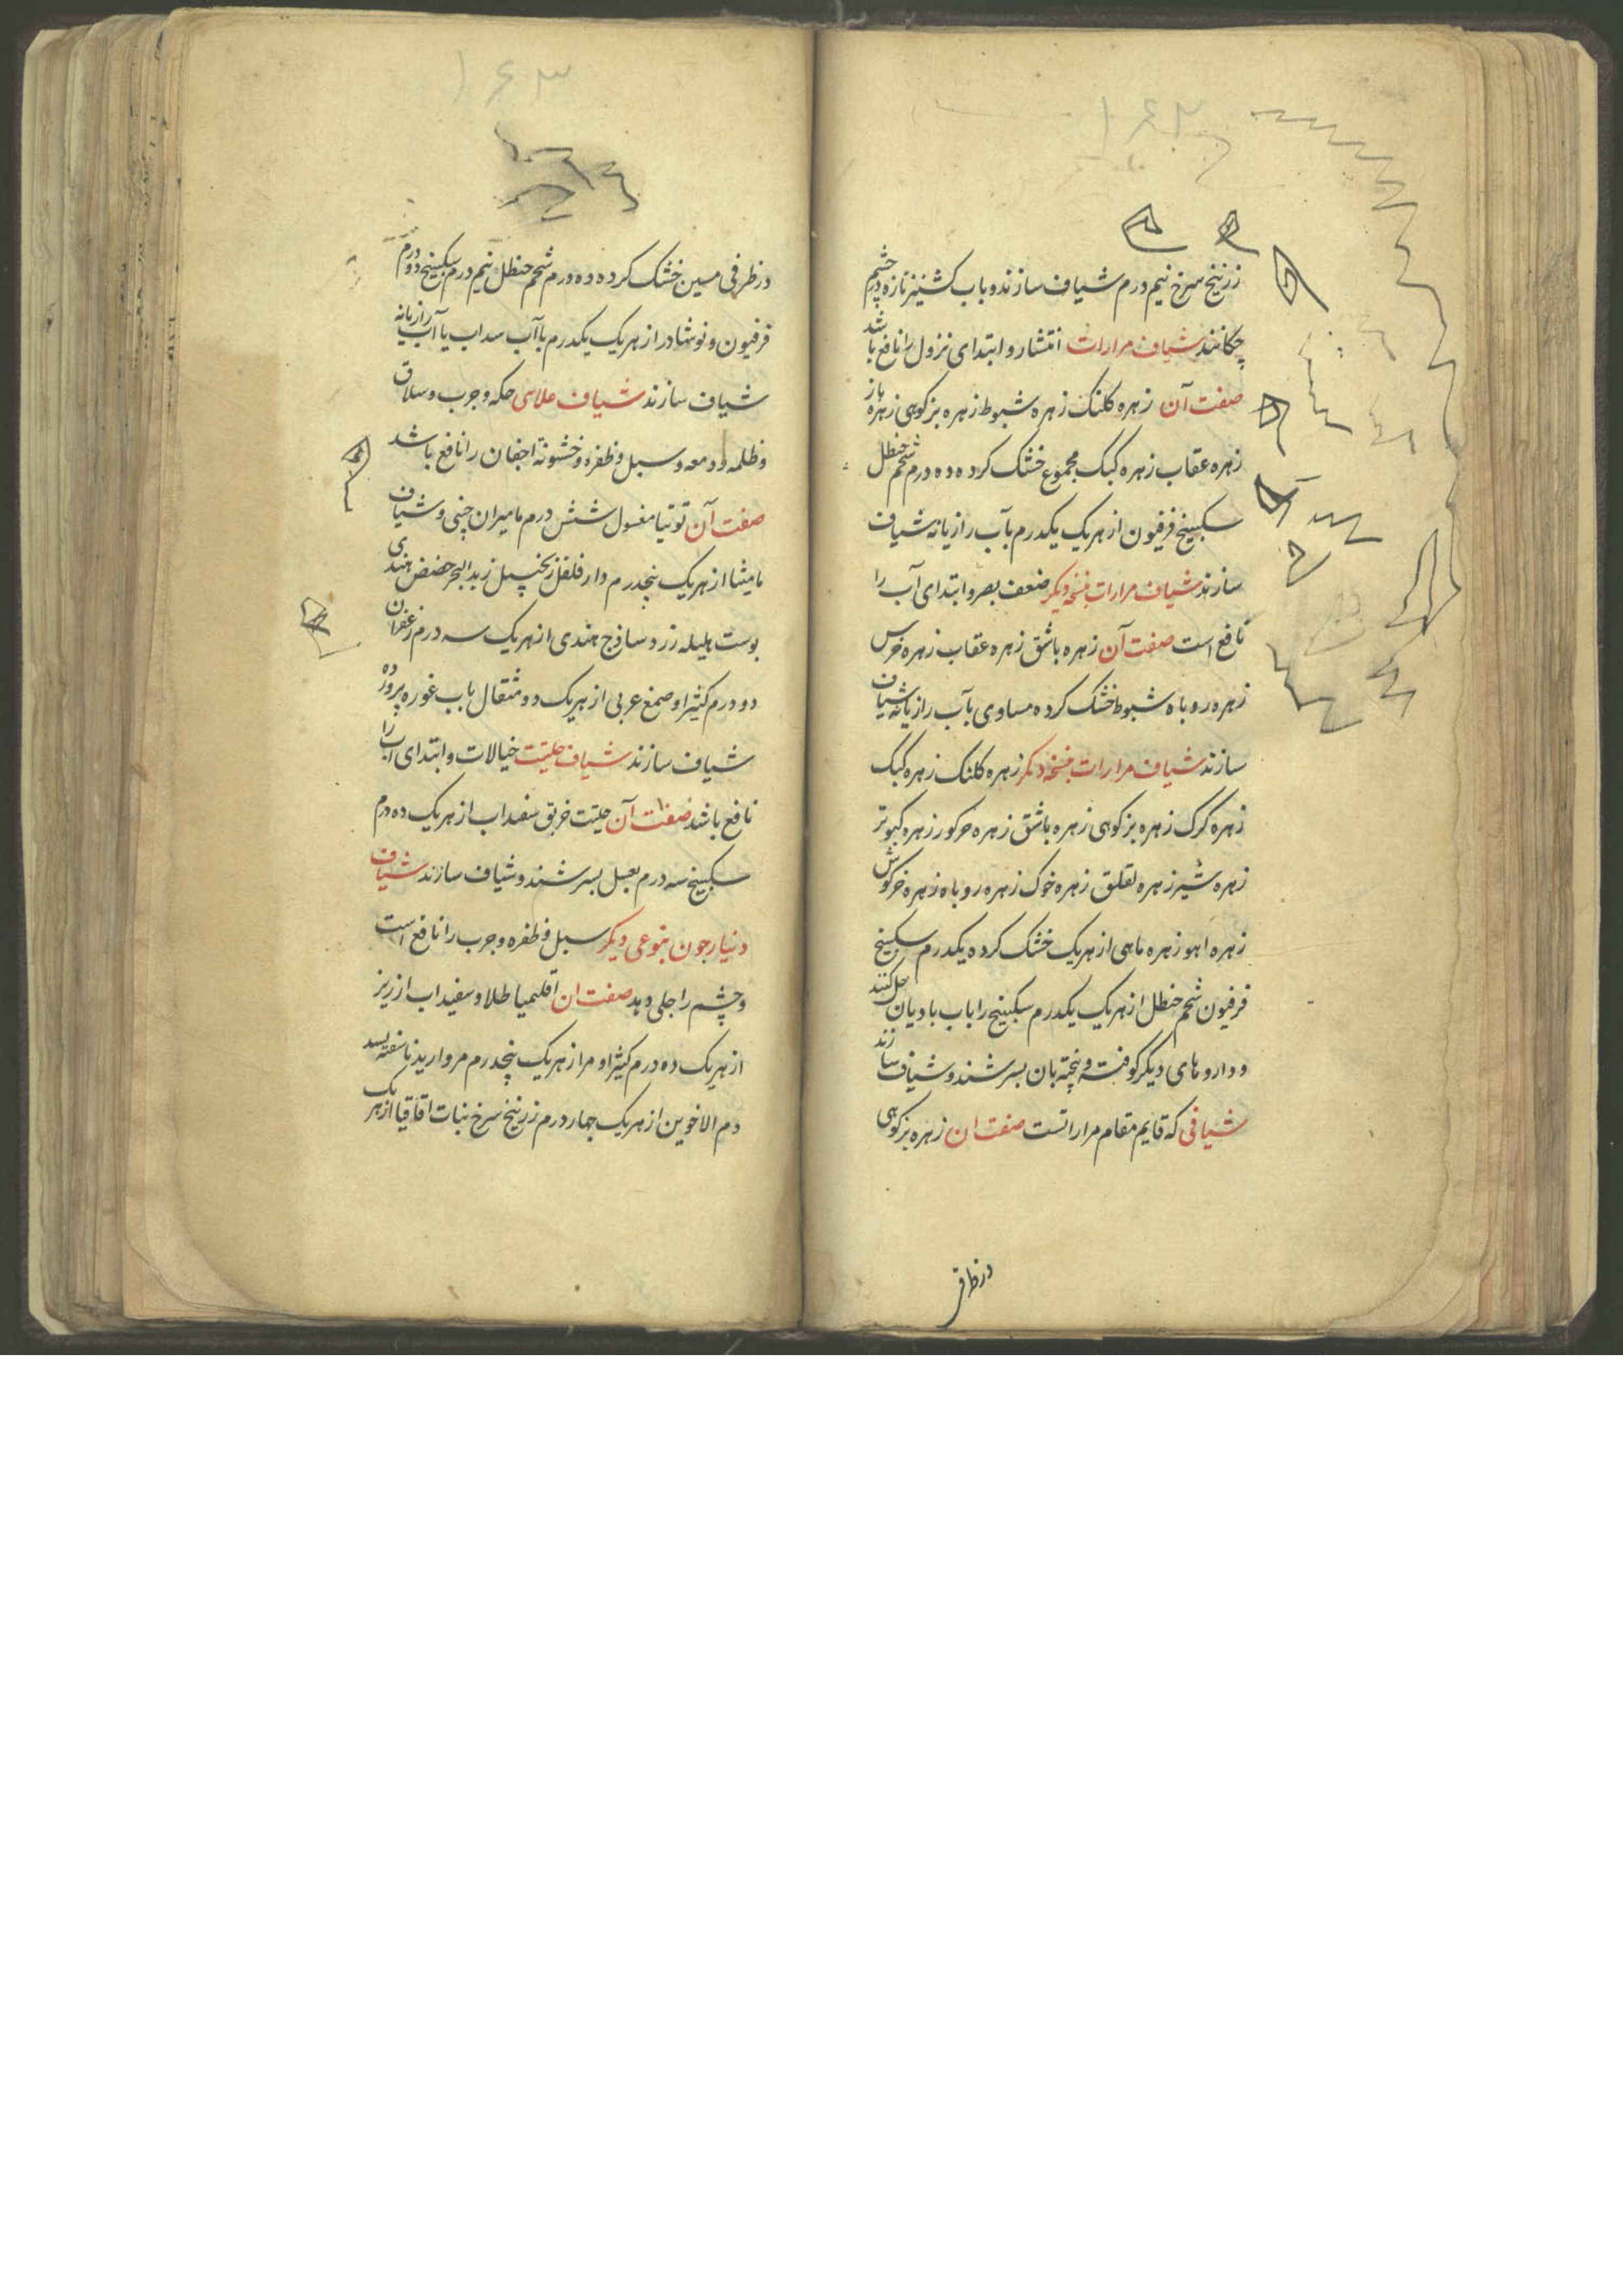 ۱۶۲
زرنیخ سرخ نیم درم شیاف سازند و باب کشنیز تازه در چشم
چکانند شیاف مرارات انتشار و ابتدای نزول را نافع باشد
صفت آن زهره کلنک زهره شبوط زهره بزکوهی زهره باز
زهره عقاب زهره کبک مجموع خشک کرده ده درم شحم حنظل
سکبینج فرفیون از هریک یکدرم بآب رازیانه شیاف
سازند شیاف مرارات بنسخه دیکر ضعف بصر و ابتدای آب را
نافع است صفت آن زهره باشق زهره عقاب زهره خرس
زهره روباه شبوط خشک کرده مساوی بآب رازیانه شیاف
سازند شیاف مرارات بنسخه دیکر زهره کلنک زهره کبک
زهره کرک زهره بزکوهی زهره باشق زهره خرکور زهره کبوتر
زهره شیر زهره لقلق زهره خوک زهره روباه زهره خرکوش
زهره اهو زهره ماهی از هریک خشک کرده یکدرم سکبینج
فرفیون شحم حنظل از هریک یکدرم سکبینج را باب بادیان حل کنند
و داروهای دیکر کوفته و بیخته بان بسرشند و شیاف سازند
شیافی که قایم مقام مراراتست صفت ان زهره بزکوهی
در ظرفی
۱۶۳
در ظرفی مسین خشک کرده ده درم شحم حنظل نیم درم سکبینج دو درم
فرفیون و نوشادر از هریک یکدرم باآب سداب یا آب رازیانه
شیاف سازند شیاف علاسی حکه و جرب و سلاق
و ظلمه و دمعه و سبل و ظفره و خشونة اجفان را نافع باشد
صفت آن توتیا مغسول شش درم مامیران چینی و شیاف
مامیثا از هریک پنجدرم دارفلفل زنجبیل زبد البحر حضض هندی
پوست هلیله زرد ساذج هندی از هریک سه درم زعفران
دو درم کثیرا و صمغ عربی از هریک دو مثقال باب غوره پرورده
شیاف سازند شیاف حلتیت خیالات و ابتدای آب را
نافع باشد صفت آن حلتیت خربق سفیداب از هریک ده درم
سکبینج سه درم بعسل بسرشند و شیاف سازند شیاف
دنیارجون بنوعی دیکر سبل و ظفره و جرب را نافع است
و چشم را جلی دهد صفت ان اقلیمیا طلا و سفیداب ارزیز
از هریک ده درم کثیرا و مر از هریک پنجدرم مروارید ناسفته بسد
دم الاخوین از هریک چهار درم زرنیخ سرخ نبات اقاقیا از هریک